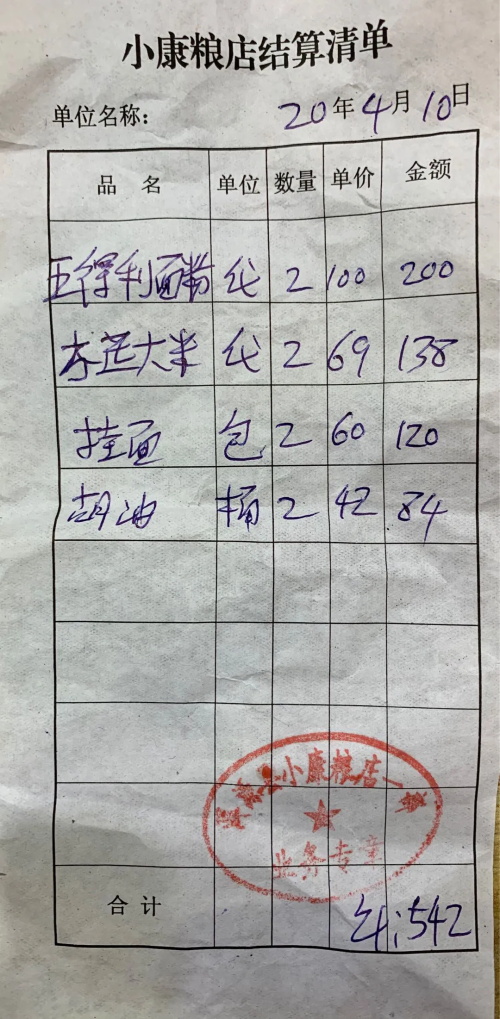 小康粮店结算清单
单位名称: 20年4月10日
品 名 单位 数量 单价 金额
五得利面粉 代 2 100 200
大米 代 2 69 138
挂面 包 2 60 120
胡油 桶 2 42 84
县小康粮店一
业务专章
合 计 542